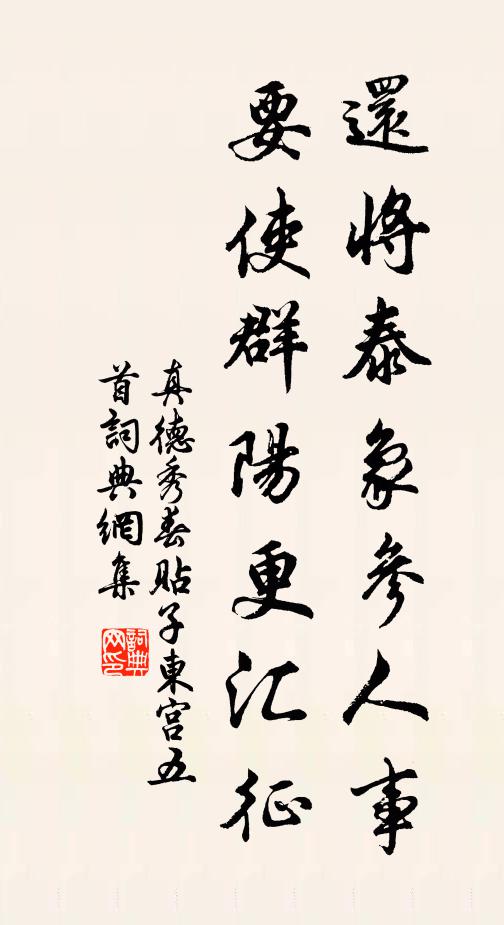 還將泰象參人事
要使群陽更汇征
真德秀春貼子東宮五
首詞典網集
詞典网印